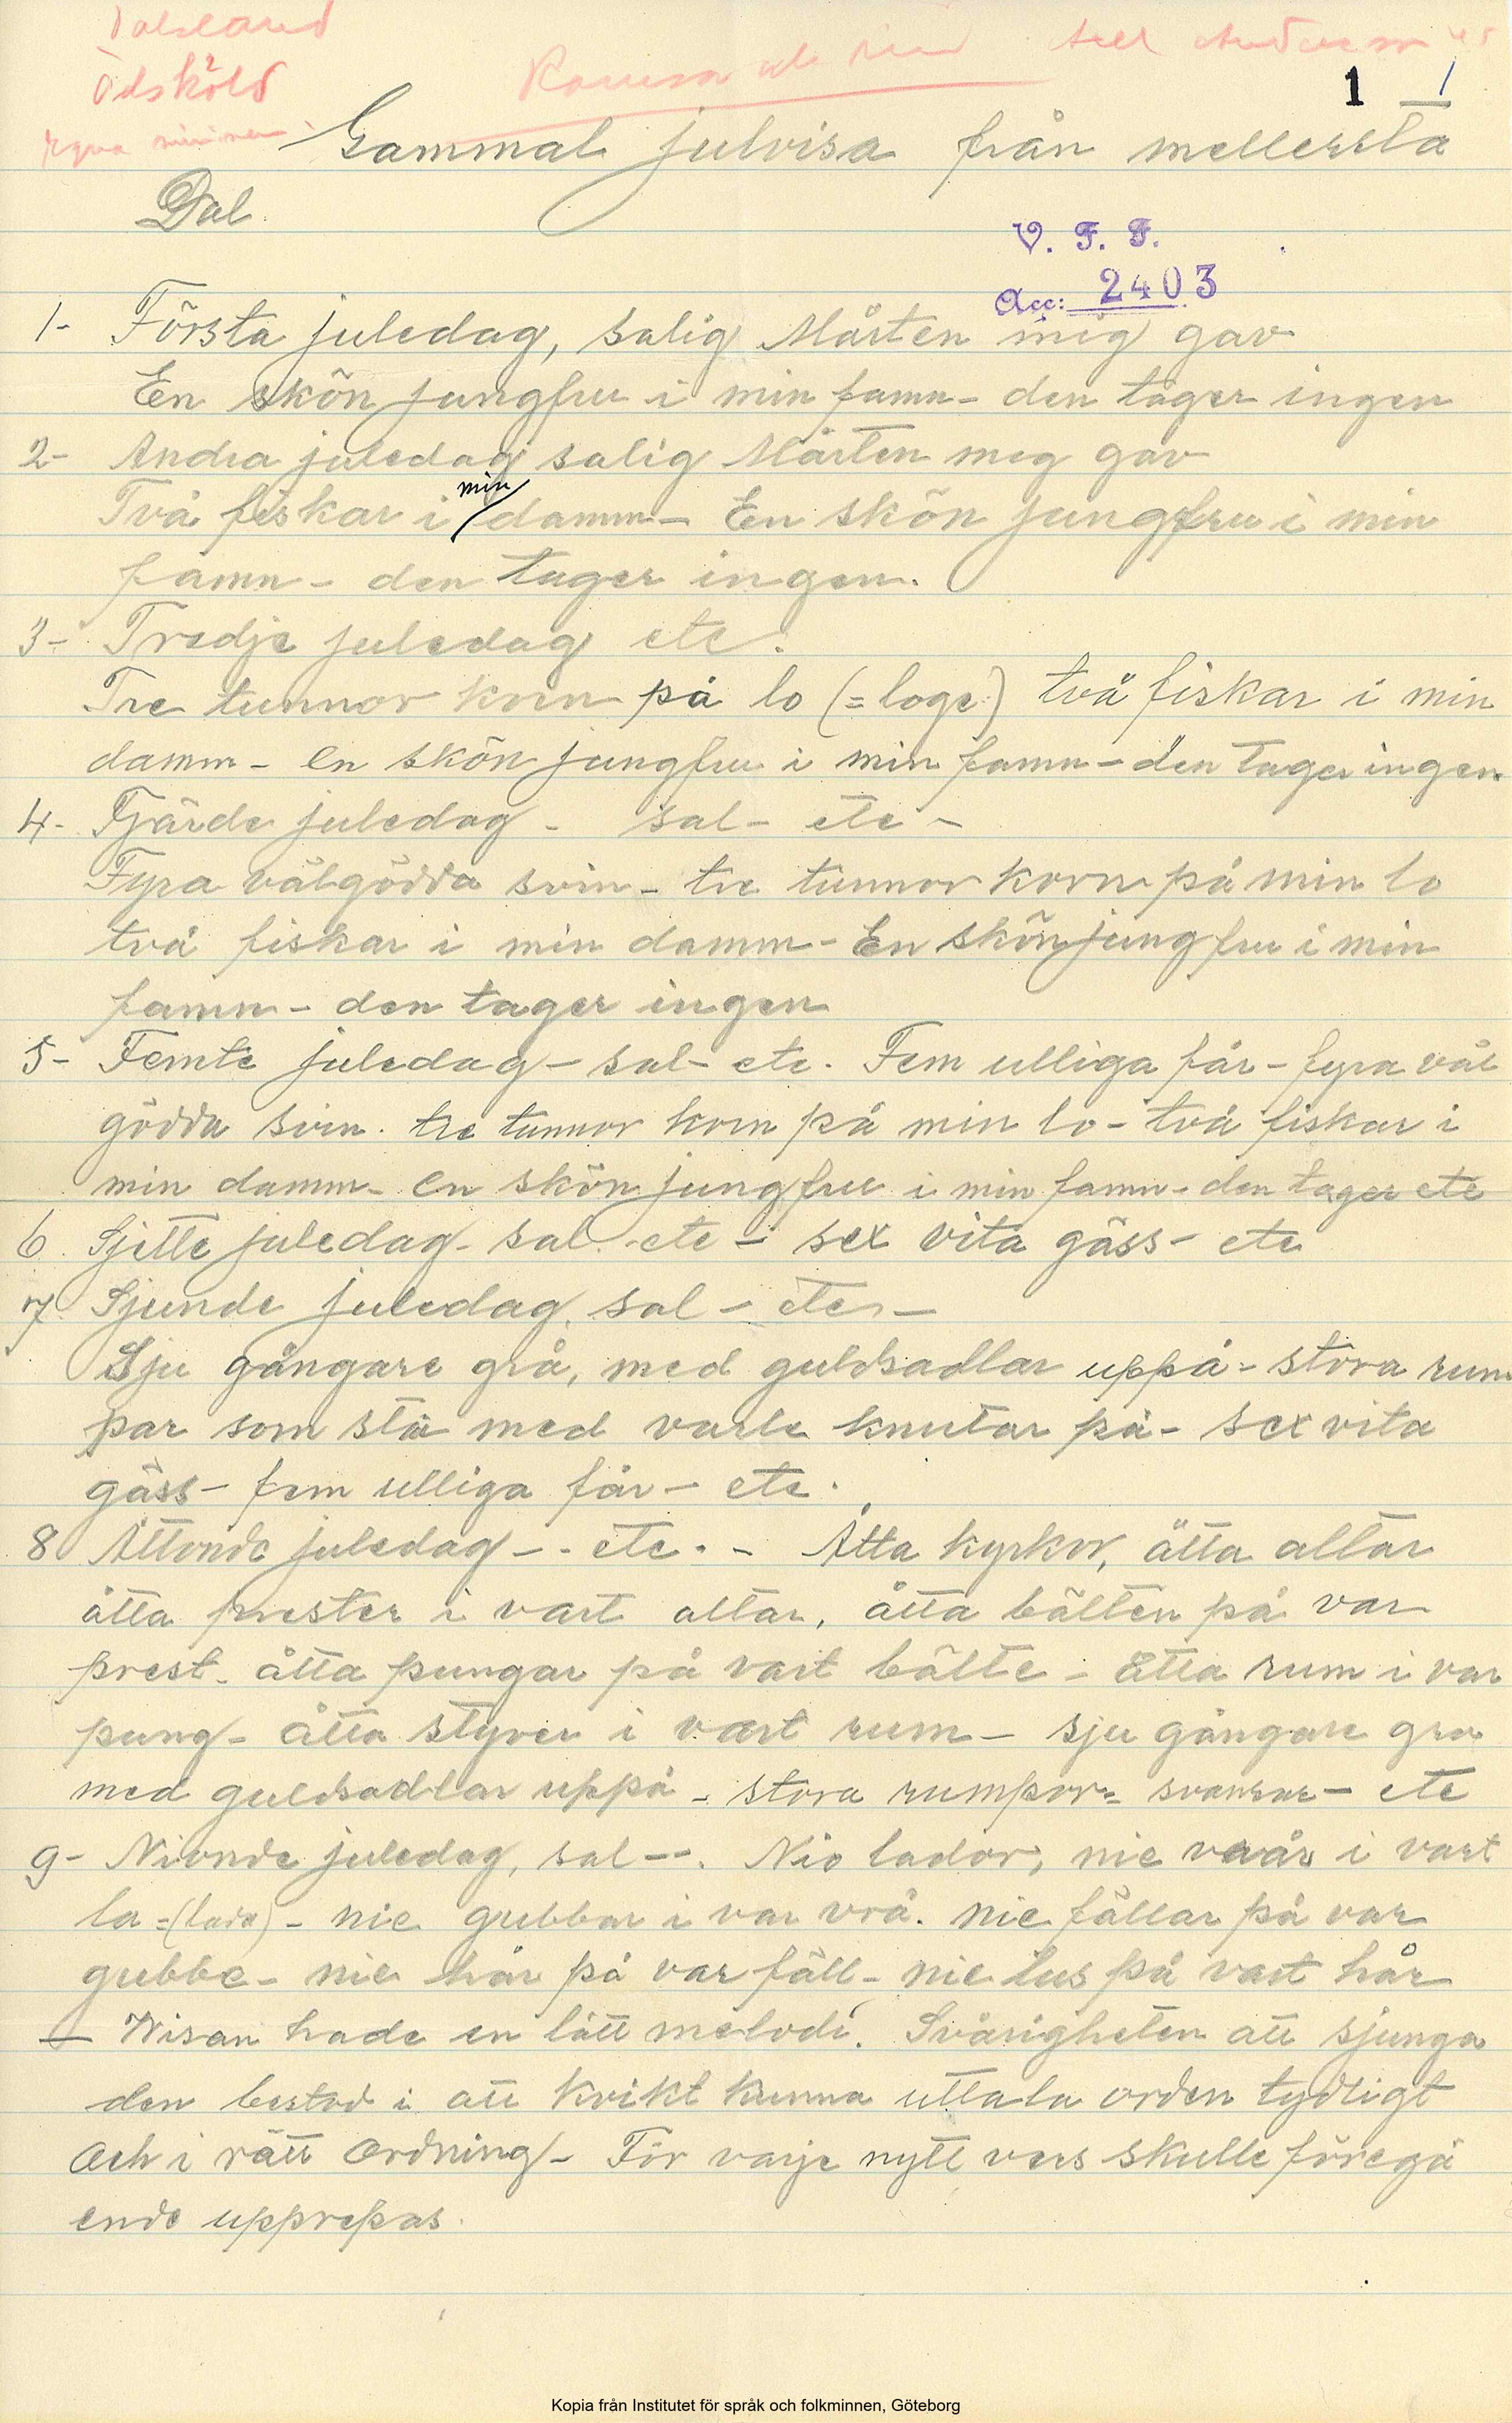 Dalsland
Ödsköld
1 1
Gammal julvisa från mellersta
Dal.
V. F. F.
Acc: 2403
1- Första juledag, salig Mårten mig gav
En skön jungfru i min famn - den tager ingen
2- Andra juledag salig Mårten meg gav
Två fiskar i min damm - En skön jungfru i min
famn - den tager ingen.
3- Tredje juledag etc.
Tre tunnor korn på lo (= loge) två fiskar i min
damm - en skön jungfru i min famn - den tager ingen
4- Fjärde juledag - sal - etc -
Fyra välgödda svin - tre tunnor korn på min lo
två fiskar i min damm - En skön jungfru i min
famn - den tager ingen
5- Femte juledag - sal - etc. Fem ulliga får - fyra väl
gödda svin. tre tunnor korn på min lo - två fiskar i
min damm - en skön jungfru i min famn - den tager etc
6. Sjette juledag - sal - etc - sex vita gäss - etc
7. Sjunde juledag, sal - etc -
Sju gångare grå, med guldsadlar uppå - stora rum
par som stå med knutar på - sex vita
gäss - fem ulliga får - etc.
8 Åttonde juledag - - etc. - Åtta kyrkor, åtta altar
åtta prester i vart altar, åtta bälten på var
prest - åtta pungar på vart bälte - åtta rum i var
pung - åtta styver i vart rum - sju gångare gra
med guldsadlar uppå - stora rumpor = svansar - etc
9- Nionde juledag, sal - -. Nio lador, nie vraår i vart
la = (lada) - nie gubbar i var vrå. nie fällar på var
gubbe - nie hår på var fäll - nie lus på vart hår
- Wisan hade en lätt melodi. Svårigheten att sjunga
den bestod i att kvikt kunna uttala orden tydligt
och i rätt ordning - För varje nytt vers skulle föregå
ende upprepas.
Kopia från Institutet för språk och folkminnen, Göteborg